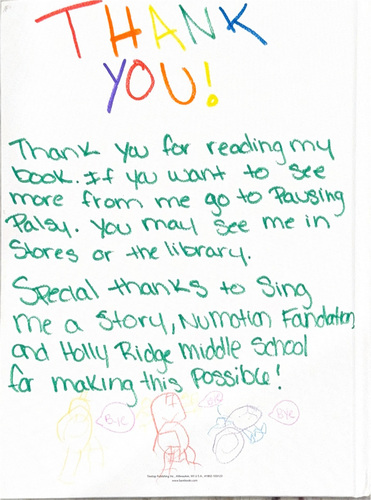 THANK
YOU!
Thank you for reading my
book. If you want to see
more from me go to Pausing
Palsy. You may see me in
Stores or the library.
Special thanks to Sing
me a Story, Numotion Fandation
and Holly Ridge Middle School
for making this possible!
BYE
BYE
BYE